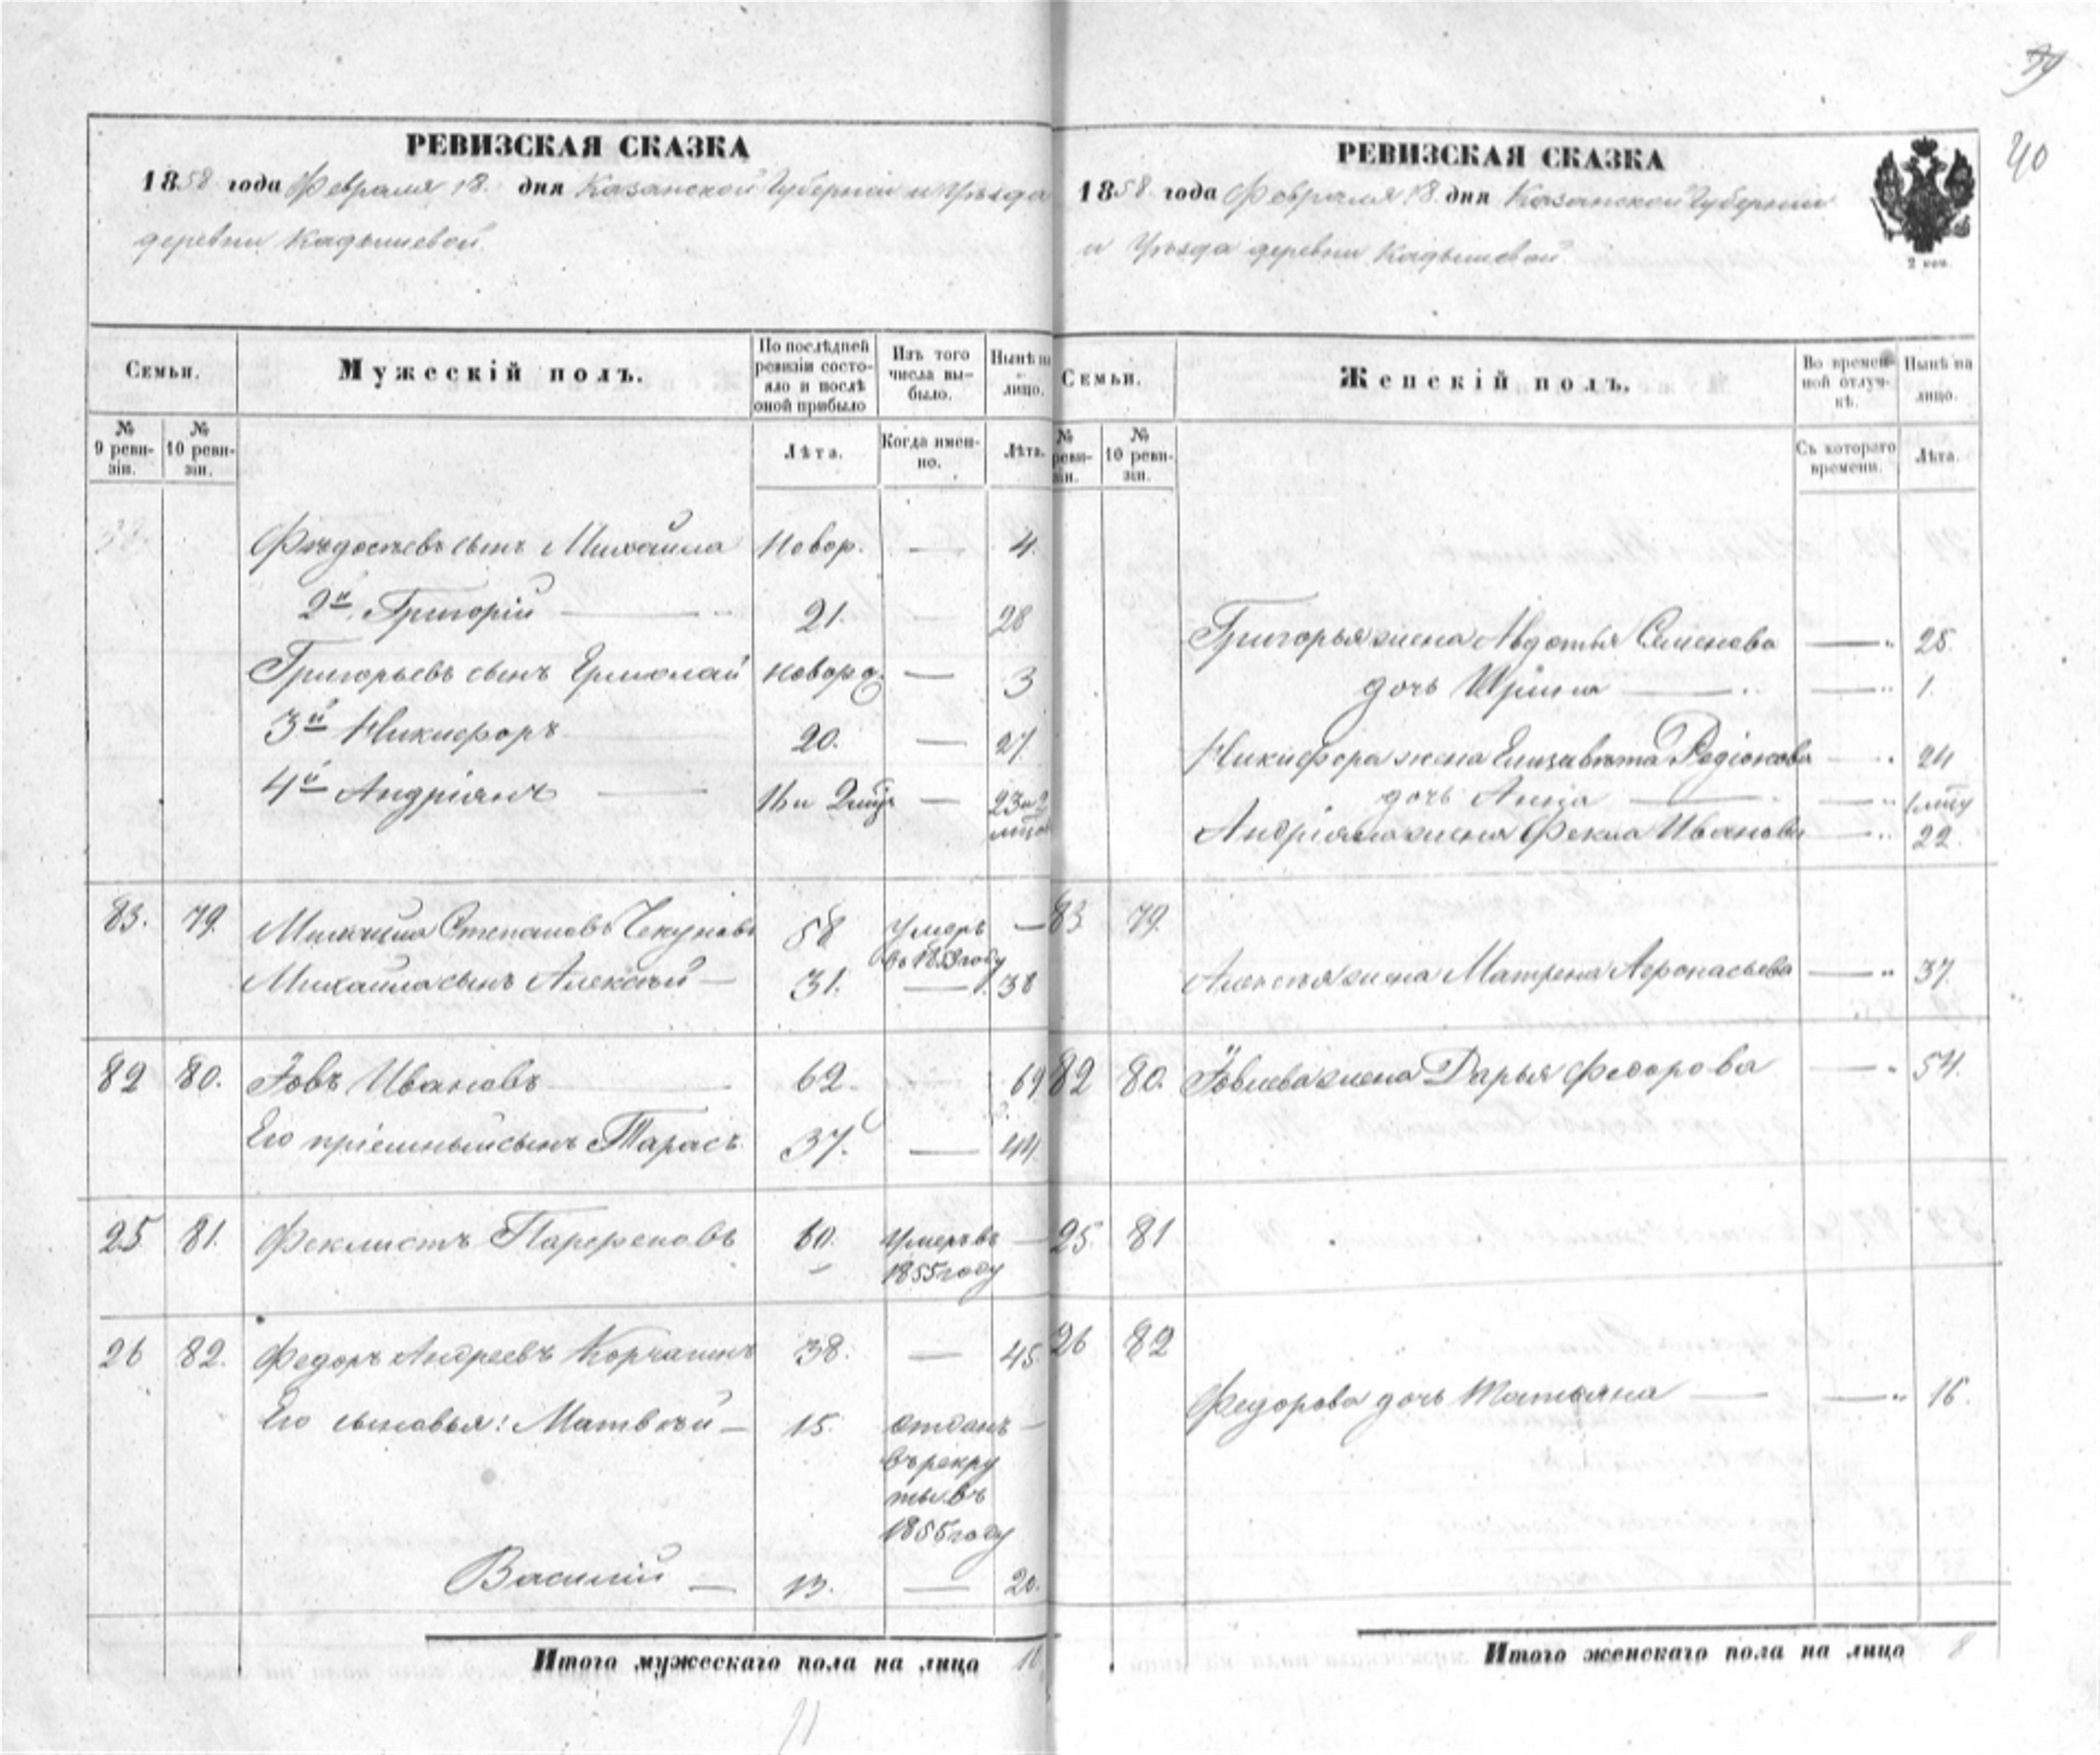 39
40
РЕВИЗСКАЯ СКАЗКА
1858 года Февраля 18. дня Казанской Губерніи и Уѣзда
деревни Кадышевой.
Семьи.
Мужескій полъ.
По послѣдней ревизіи состояло и послѣ оной прибыло
Изъ того числа выбыло.
Нынѣ на лицо.
№ 9 ревизіи.
№ 10 ревизіи.
Лѣта.
Когда именно.
Лѣта.
Ѳедосѣевъ сынъ Михайла Новор. — 4.
2й Григорій — 21. — 28
Григорьевъ сынъ Ермолай Новорд. — 3
3й Никифоръ 20. — 27
4й Андріянъ — 16 и 2 мѣц — 23 и 2 мѣцов
83. 79. Михайла Степановъ Чекуновъ 58 Умеръ въ 1853 году —
Михайла сынъ Алексѣй — 31. — 38
82 80. Іовъ Ивановъ 62. — 69
Его пріемный сынъ Тарасъ 37. — 44.
25 81. Феклистъ Парфеновъ 60. Умеръ въ 1855 году —
26 82. Федоръ Андреевъ Корчагинъ 38. — 45.
Его сыновья: Матвѣй — 15. отданъ въ рекруты въ 1855 году —
Василій — 13. — 20.
Итого мужескаго пола на лицо 10
11
РЕВИЗСКАЯ СКАЗКА
1858 года Февраля 18. дня Казанской Губерніи
и Уѣзда деревни Кадышевой.
2 коп.
Семьи.
Женскій полъ.
Во временной отлучкѣ.
Нынѣ на лицо.
№ ревизіи.
№ 10 ревизіи.
Съ котораго времени.
Лѣта.
Григорья жена Авдотья Семенова — 25.
дочь Ирина — — 1.
Никифора жена Елизавѣта Родіонова — 24
дочь Анна — — 1 мѣцу
Андріяна жена Фекла Иванова — 22.
83 79.
Алексѣя жена Матрена Афонасьева — 37.
82 80. Іовлева жена Дарья Федорова — 54.
25 81
26 82
Федорова дочь Татьяна — — 16.
Итого женскаго пола на лицо 8